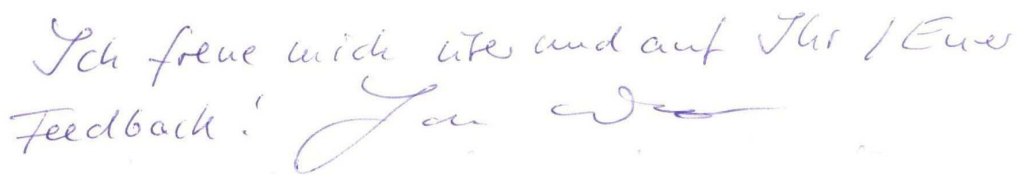 Ich freue mich über und auf Ihr / Euer
Feedback!